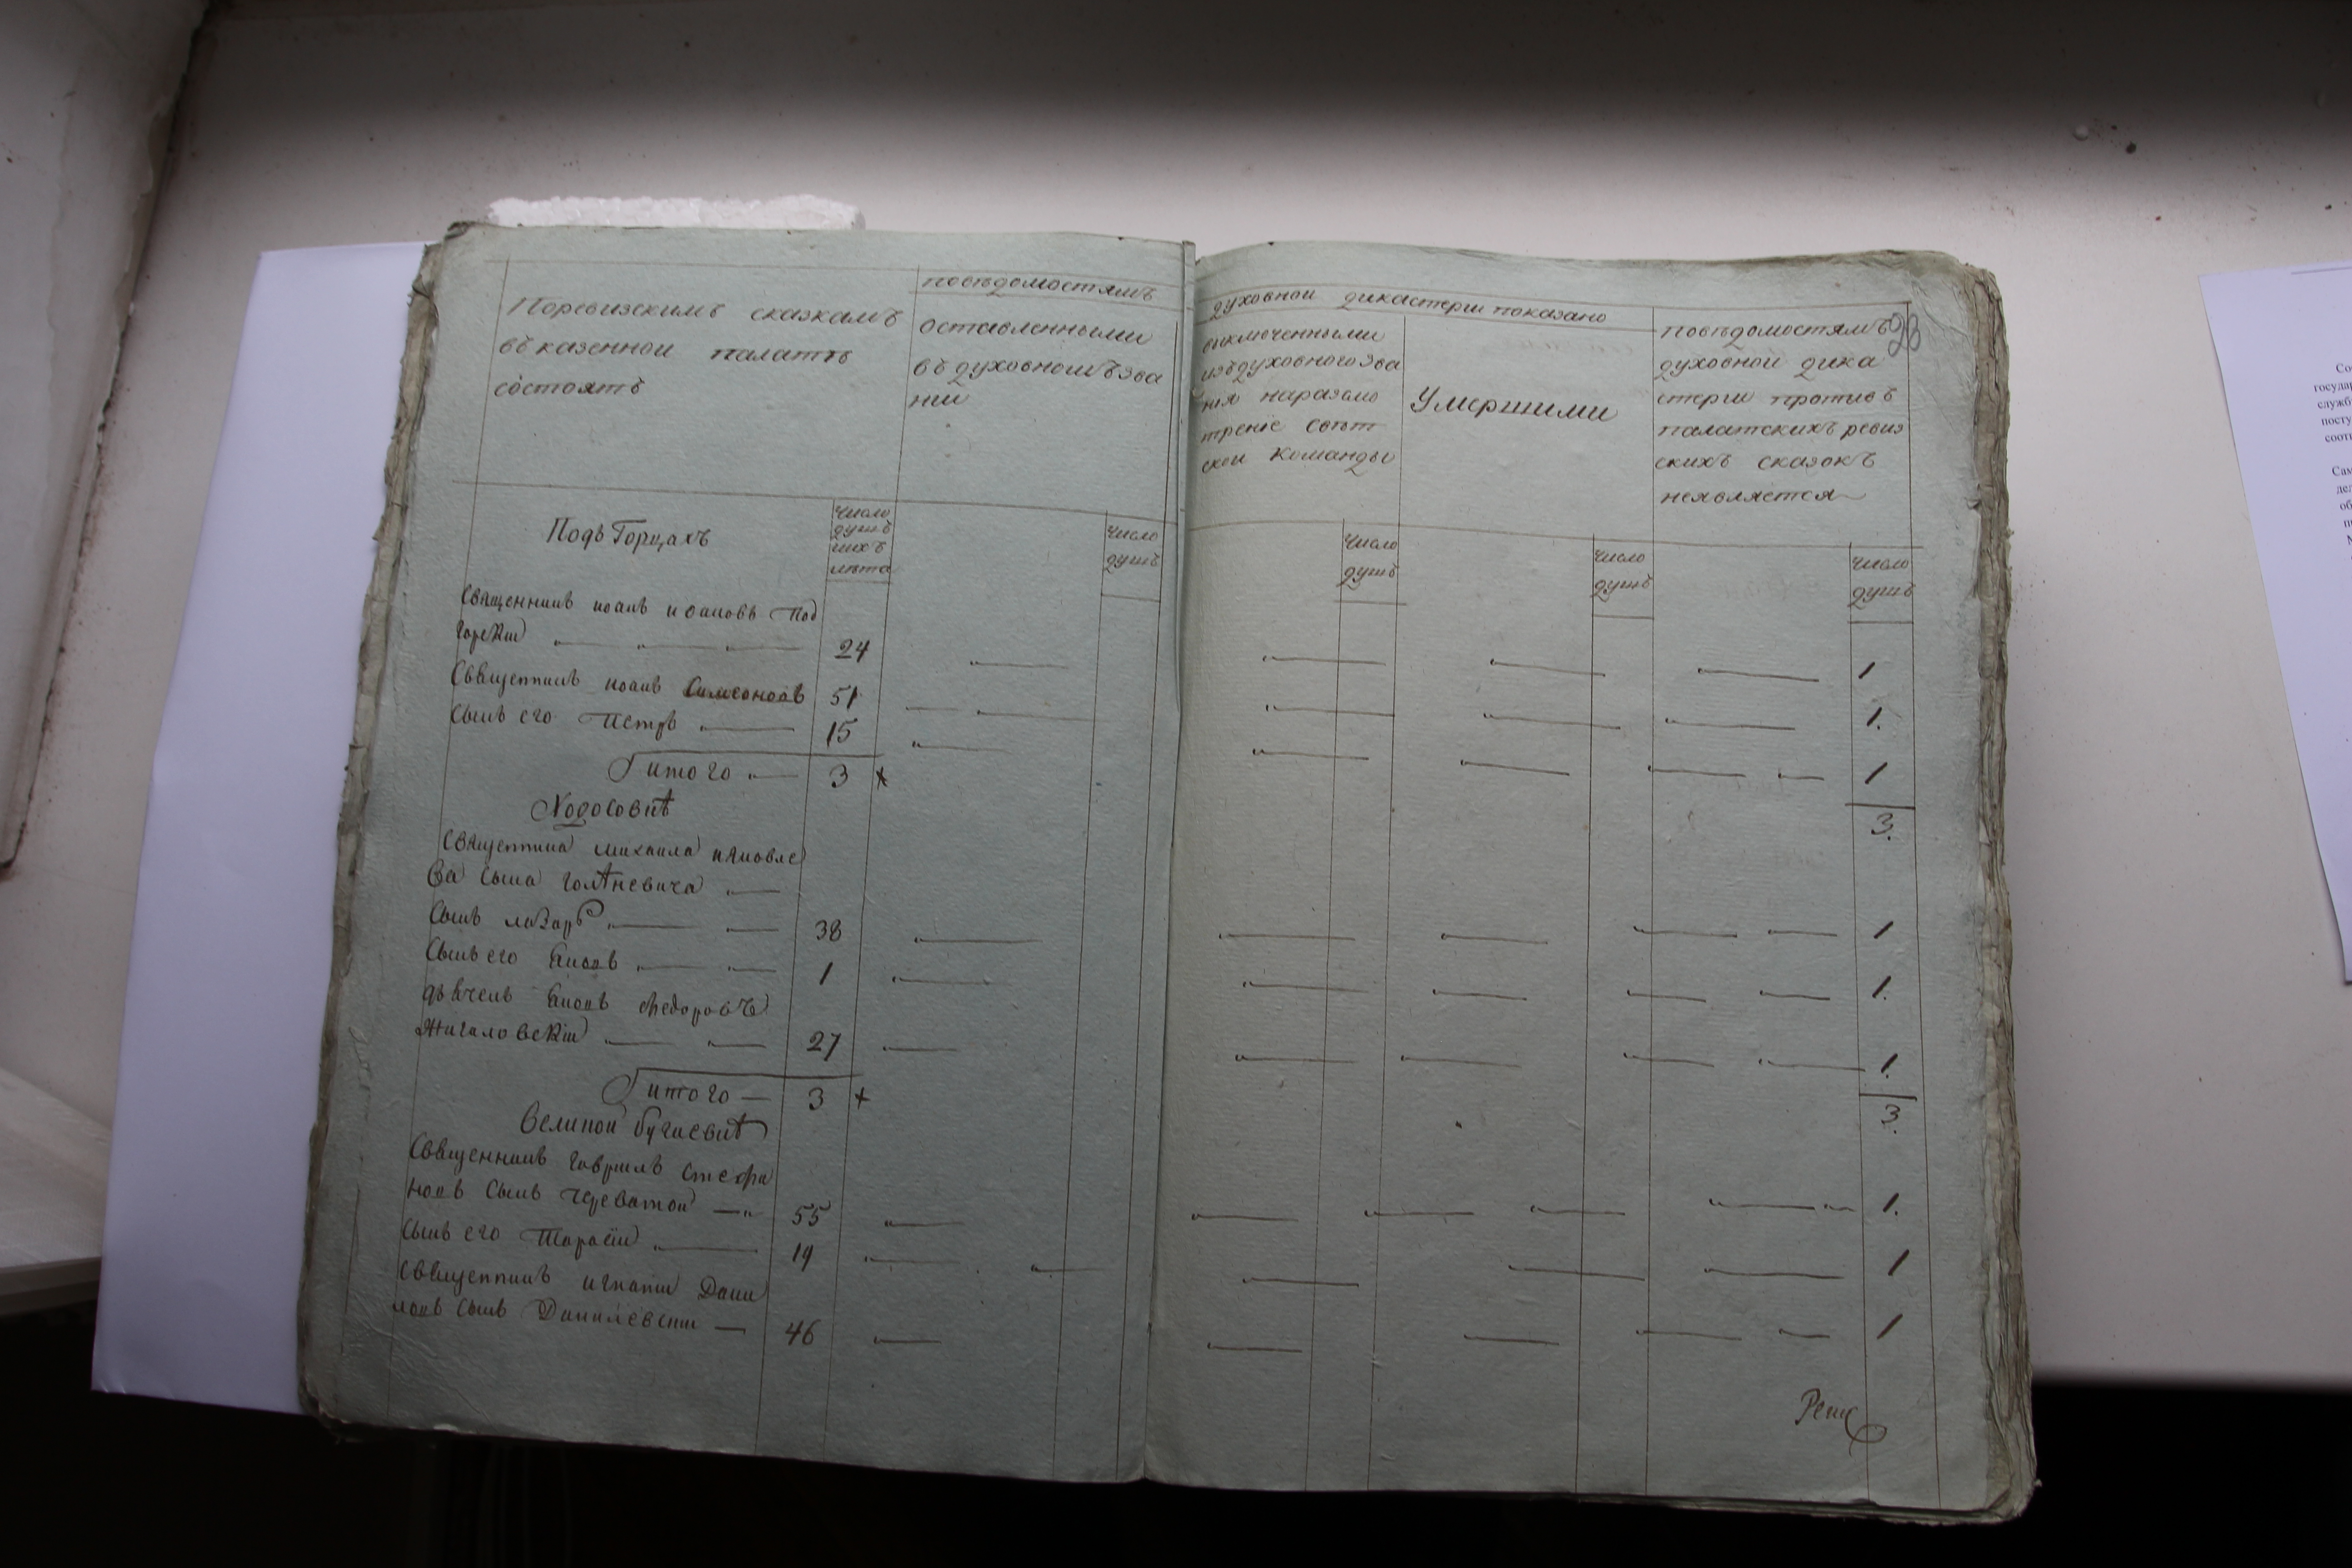 Поревизскимъ сказкамъ
въ казеннои палатѣ
состоятъ
повѣдомостямъ
оставленными
въ духовномъ зва
нии
духовнои дикастерии показано
выключенными
изъ духовного зва
ния наразсмо
трение свѣт
скои команды
Умершими
повѣдомостямъ
духовнои дика
стерии противъ
палатскихъ ревиз
скихъ сказокъ
неявляется
23
Число
душъ
ихъ
лѣта
число
душъ
число
душъ
число
душъ
число
душъ
Подъ Горцахъ
Священникъ иоанъ иоановъ Под
горскии 24 1
Священникъ иоанъ Симеоновъ 51 1.
Сынъ его Петръ 15 1
итого 3 3.
Ходосовкѣ
Священника михаила
ва сына голѣневича
Сынъ лазаръ 38 1
Сынъ его 1 1.
дьячекъ федоровъ
Жигаловскии 27 1.
итого 3 3.
Великои бугаевкѣ
Священникъ гавриилъ стефа
новъ сынъ Череватои 55 1.
Сынъ его Тарасии 19 1
Священникъ игнатии Дани
ловъ сынъ Данилевскии 46 1